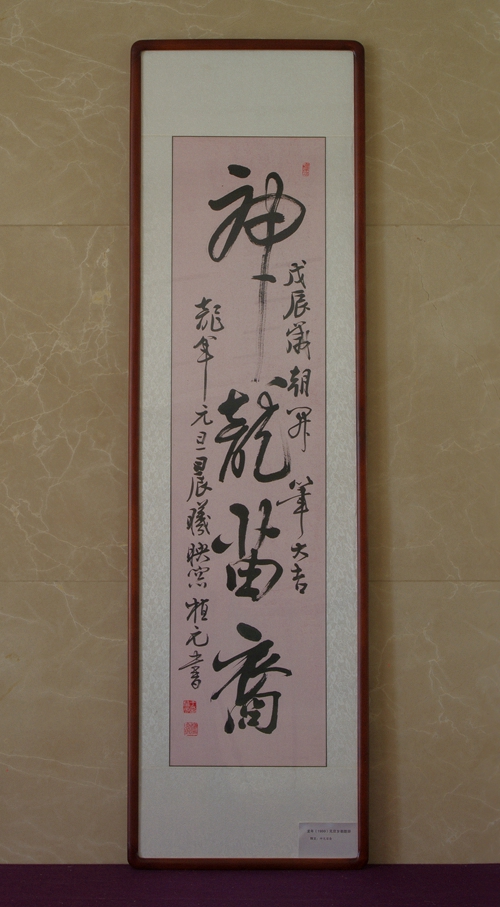 神龍苗裔
戊辰歲朝開筆大吉
龍年元旦晨曦映窗植元書